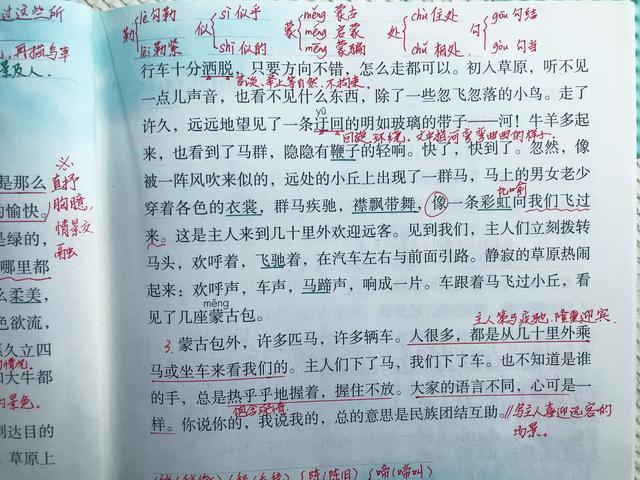 过这些所
再描写事
景及人.
是那么
的愉快。
是绿的,
哪里都
么柔美,
色欲流,
久立四
和大牛都
景色.
到达目的
草原上
※
直抒
胸臆,
情景交
融
勒 lè 勾勒 lēi 勒紧
似 sì 似乎 shì 似的
蒙 měng 蒙古 méng 启蒙 mēng 蒙骗
处 chǔ 住处 chǔ 相处
句 jù 句结 gōu 句当
行车十分洒脱,只要方向不错,怎么走都可以。初入草原,听不见
言谈、举止等自然,不拘束.
一点儿声音,也看不见什么东西,除了一些忽飞忽落的小鸟。走了
yū
许久,远远地望见了一条迂回的明如玻璃的带子——河!牛羊多起
回旋,环绕,文中指河弯弯曲曲的样子.
来,也看到了马群,隐隐有鞭子的轻响。快了,快到了。忽然,像
被一阵风吹来似的,远处的小丘上出现了一群马,马上的男女老少
比喻
穿着各色的衣裳,群马疾驰,襟飘带舞,像一条彩虹向我们飞过
来。这是主人来到几十里外欢迎远客。见到我们,主人们立刻拨转
马头,欢呼着,飞驰着,在汽车左右与前面引路。静寂的草原热闹
起来:欢呼声,车声,马蹄声,响成一片。车跟着马飞过小丘,看
měng
见了几座蒙古包。
主人策马疾驰、隆重迎宾.
3. 蒙古包外,许多匹马,许多辆车。人很多,都是从几十里外乘
马或坐车来看我们的。主人们下了马,我们下了车。也不知道是谁
的手,总是热乎乎地握着,握住不放。大家的语言不同,心可是一
样。你说你的,我说我的,总的意思是民族团结互助。//写主人喜迎远客的
场景。
陈(陈旧) 啼(啼叫)